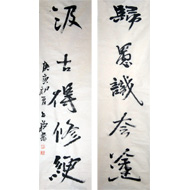 歸愚識夷塗
汲古得修綆
庚寅初夏